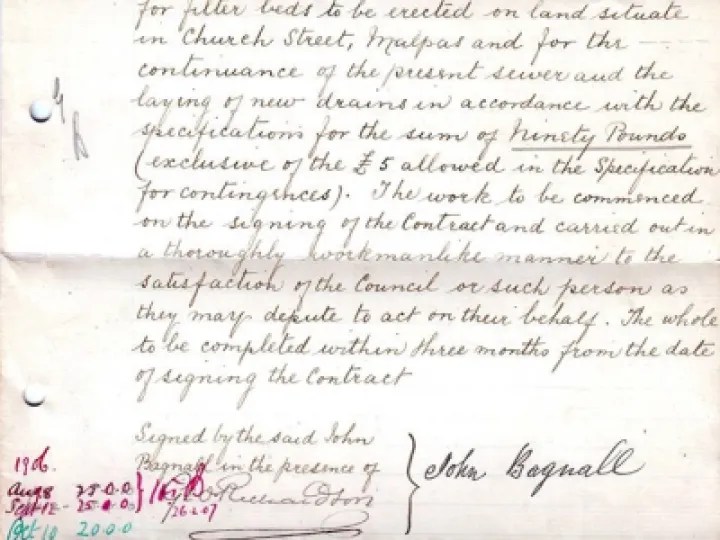 for filter beds to be erected on land situate
in Church Street, Malpas and for the
continuance of the present sewer and the
laying of new drains in accordance with the
specifications for the sum of Ninety Pounds
(exclusive of the £5 allowed in the Specification
for contingences). The work to be commenced
on the signing of the Contract and carried out in
a thoroughly workmanlike manner to the
satisfaction of the Council or such person as
they may depute to act on their behalf. The whole
to be completed within three months from the date
of signing the Contract
Signed by the said John
Bagnall in the presence of
Richardson
John Bagnall
1906.
Aug 8 25-0-0
Sept 12 - 25-0-0
26-2-07
Oct 10 20-0-0